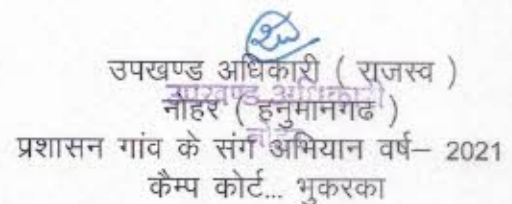 उपखण्ड अधिकारी ( राजस्व )
उपखण्ड अधिकारी
नोहर ( हनुमानगढ )
नोहर
प्रशासन गांव के संग अभियान वर्ष– 2021
कैम्प कोर्ट... भुकरका